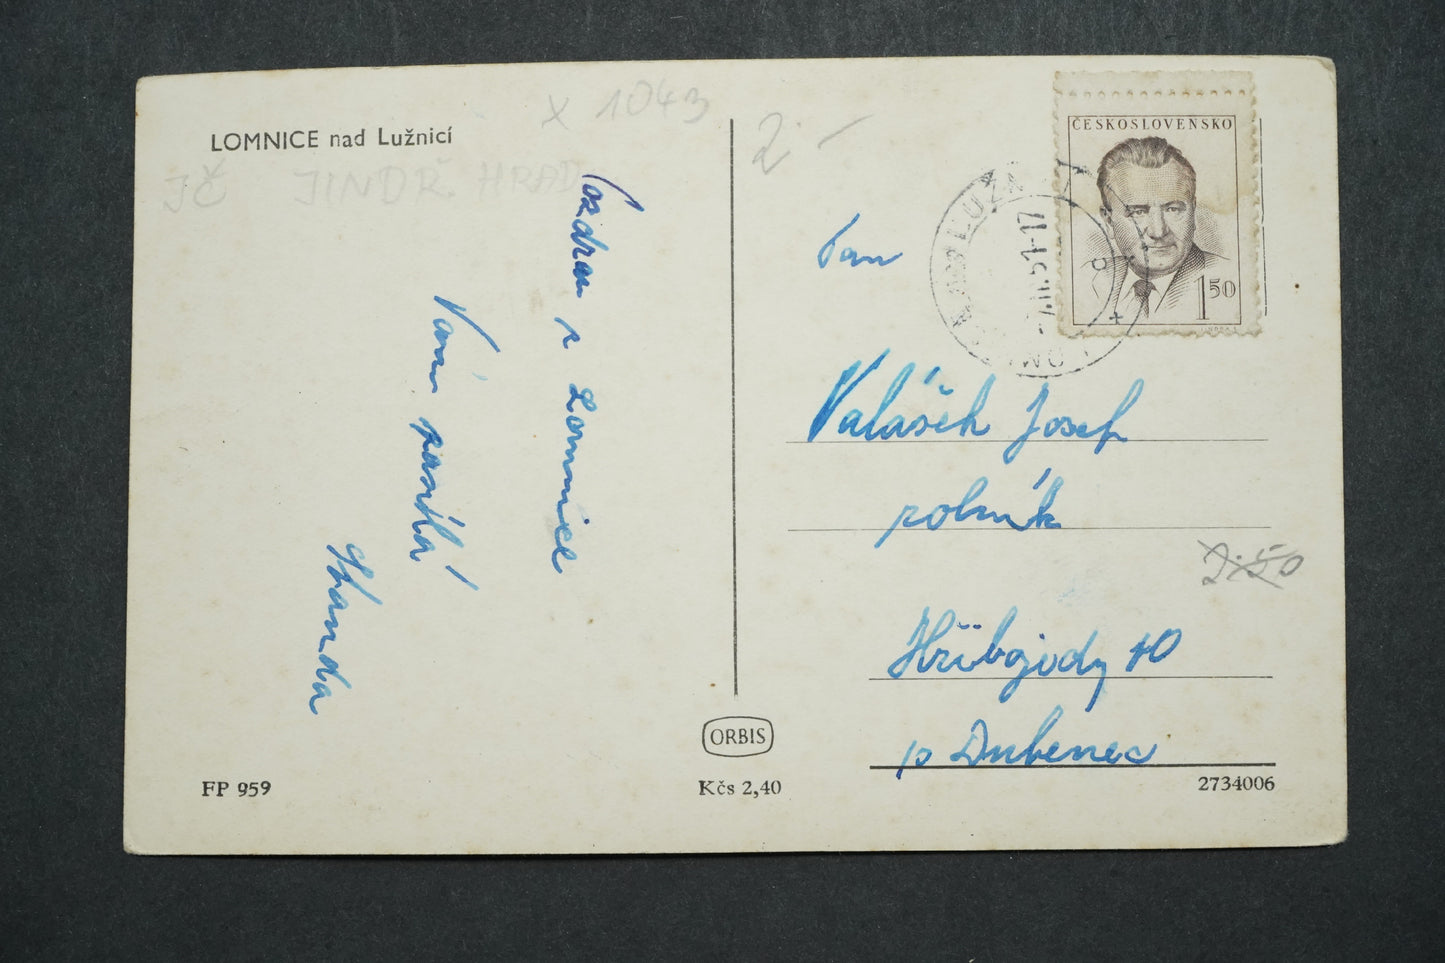 LOMNICE nad Lužnicí
x 1043
JČ JINDR. HRAD
Pozdrav z Lomnice
Vám posílá
FP 959
ORBIS
Kčs 2,40
2.-
ČESKOSLOVENSKO
1 50
Pan
Valášek Josef
rolník
2.50
Hřibojedy 40
p Dubenec
2734006